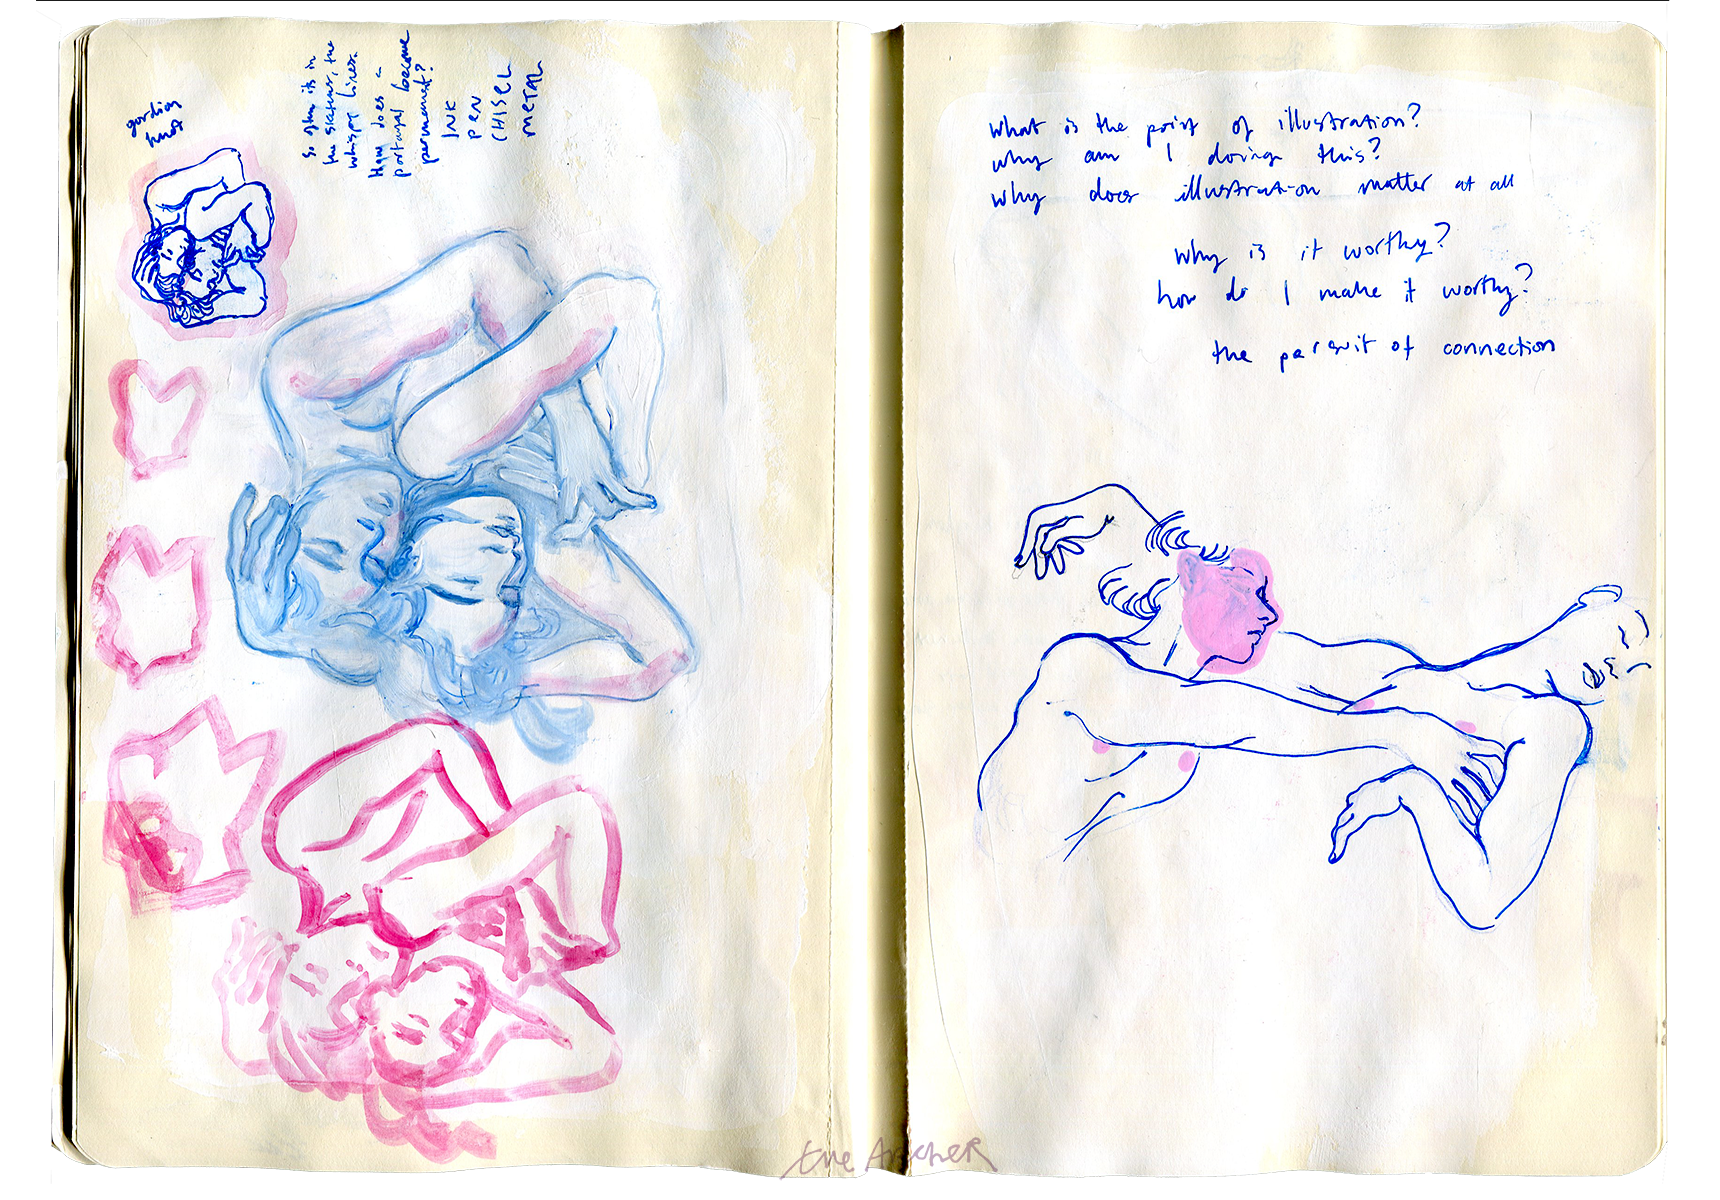 gordian
knot
So often its in
the sketches, the
whispy lines.
How does a
portrayal become
permanent?
INK
PEN
CHISEL
METAL
what is the point of illustration?
why am I doing this?
why does illustration matter at all
why is it worthy?
how do I make it worthy?
the persuit of connection
Eve Archer